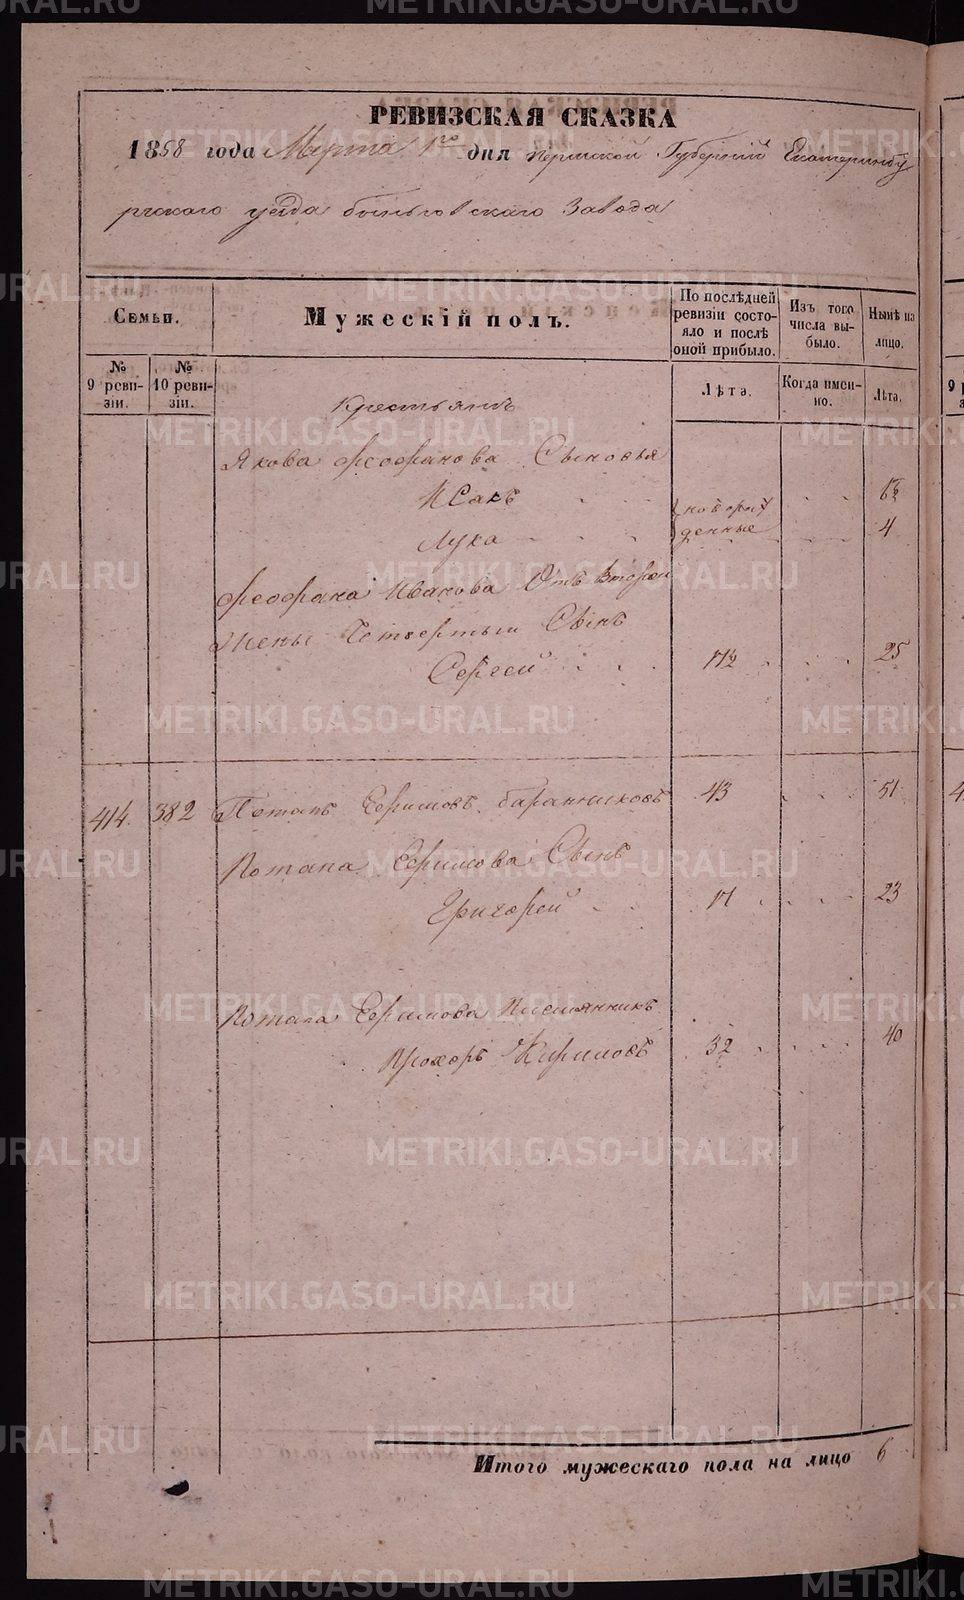 РЕВИЗСКАЯ СКАЗКА
1858 года Марта 1го дня Пермской Губерний Екатеринбу
ргскаго уезда быньговскаго Завода
Семьи.
Мужескій полъ.
По послѣдней ревизіи состояло и послѣ оной прибыло.
Изъ того числа выбыло.
Нынѣ на лицо.
№ 9 ревизіи.
№ 10 ревизіи.
Лѣта.
Когда именно.
Лѣта.
Крестьянъ
Якова Феофанова Сыновья
Исакъ
Лука новорож денные 4
Феофана Иванова Отъ второй
Жены Четвертый Сынъ
Сергей 17½ 25
414. 382 Потапъ Ефимовъ баранниковъ 43 51
Потапа Ефимова Сынъ
Григорей 23
Потапа Ефимова Племянникъ
Прохоръ 32 40
Итого мужескаго пола на лицо 6
METRIKI.GASO-URAL.RU